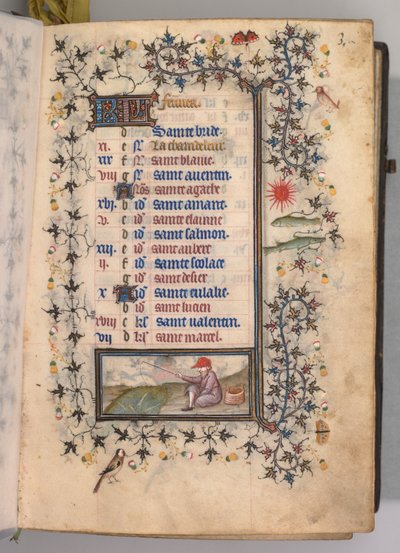 3
KL feurier.
d Sainte bride.
xi. e La chandeleur.
xix f saint blaiue.
viij g saint auentin.
A Noꝰ sainte agathe
xvj. b id saint amant.
v. c id sainte elainne
d id saint salmon.
xiij e id saint aubert
ij f id sainte scolace
g id saint desier
x A id sainte eulalie.
b id saint lucien
xviij c kl saint valentin.
vij d kl saint marcel.